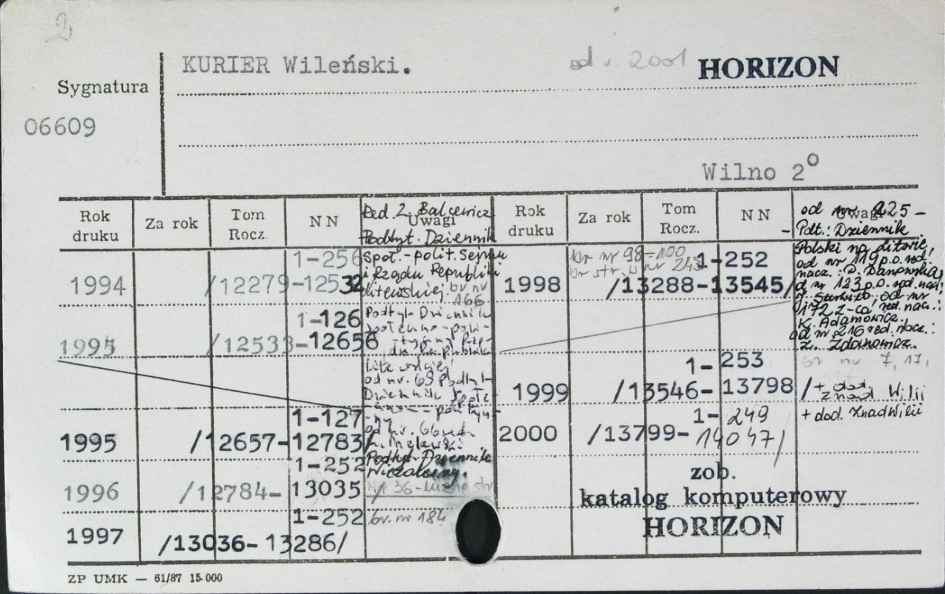 2
KURIER Wileński.
od r. 2001 HORIZON
Sygnatura
06609
Wilno 2°
Rok druku
Za rok
Tom Rocz.
NN
Uwagi
Rok druku
Za rok
Tom Rocz.
NN
Uwagi
Red. Z. Balcewicz
Podtyt. Dziennik
społ.-polit. Sejmu
i Rządu Republiki
litewskiej br nr
166
1994 /12279-12532
1-256
1-126
1995 /12533-12656
Podtyt. Dziennik
od nr. 69 Podtyt.
Dziennik
1-127
1995 /12657-12783/
od nr. 66
Podtyt. Dziennik
Niezależny.
1-252
1996 /12784-13035/
Nr 36
1-252 br. nr 184
1997 /13036-13286/
od nr 225-
Pdt.: Dziennik
Polski na Litwie,
od nr 119 p.o. red.
nacz.:
od nr
K. Adamowicz
od nr 216 red. nacz.:
br nr 98-100
br str. w nr 243
1-252
1998 /13288-13545/
br nr 7, 17,
1-253
1999 /13546-13798/
+ dod.
znad Wilii
1-249
2000 /13799-14047/
+ dod. Znad Wilii
zob.
katalog komputerowy
HORIZON
ZP UMK — 61/87 15 000